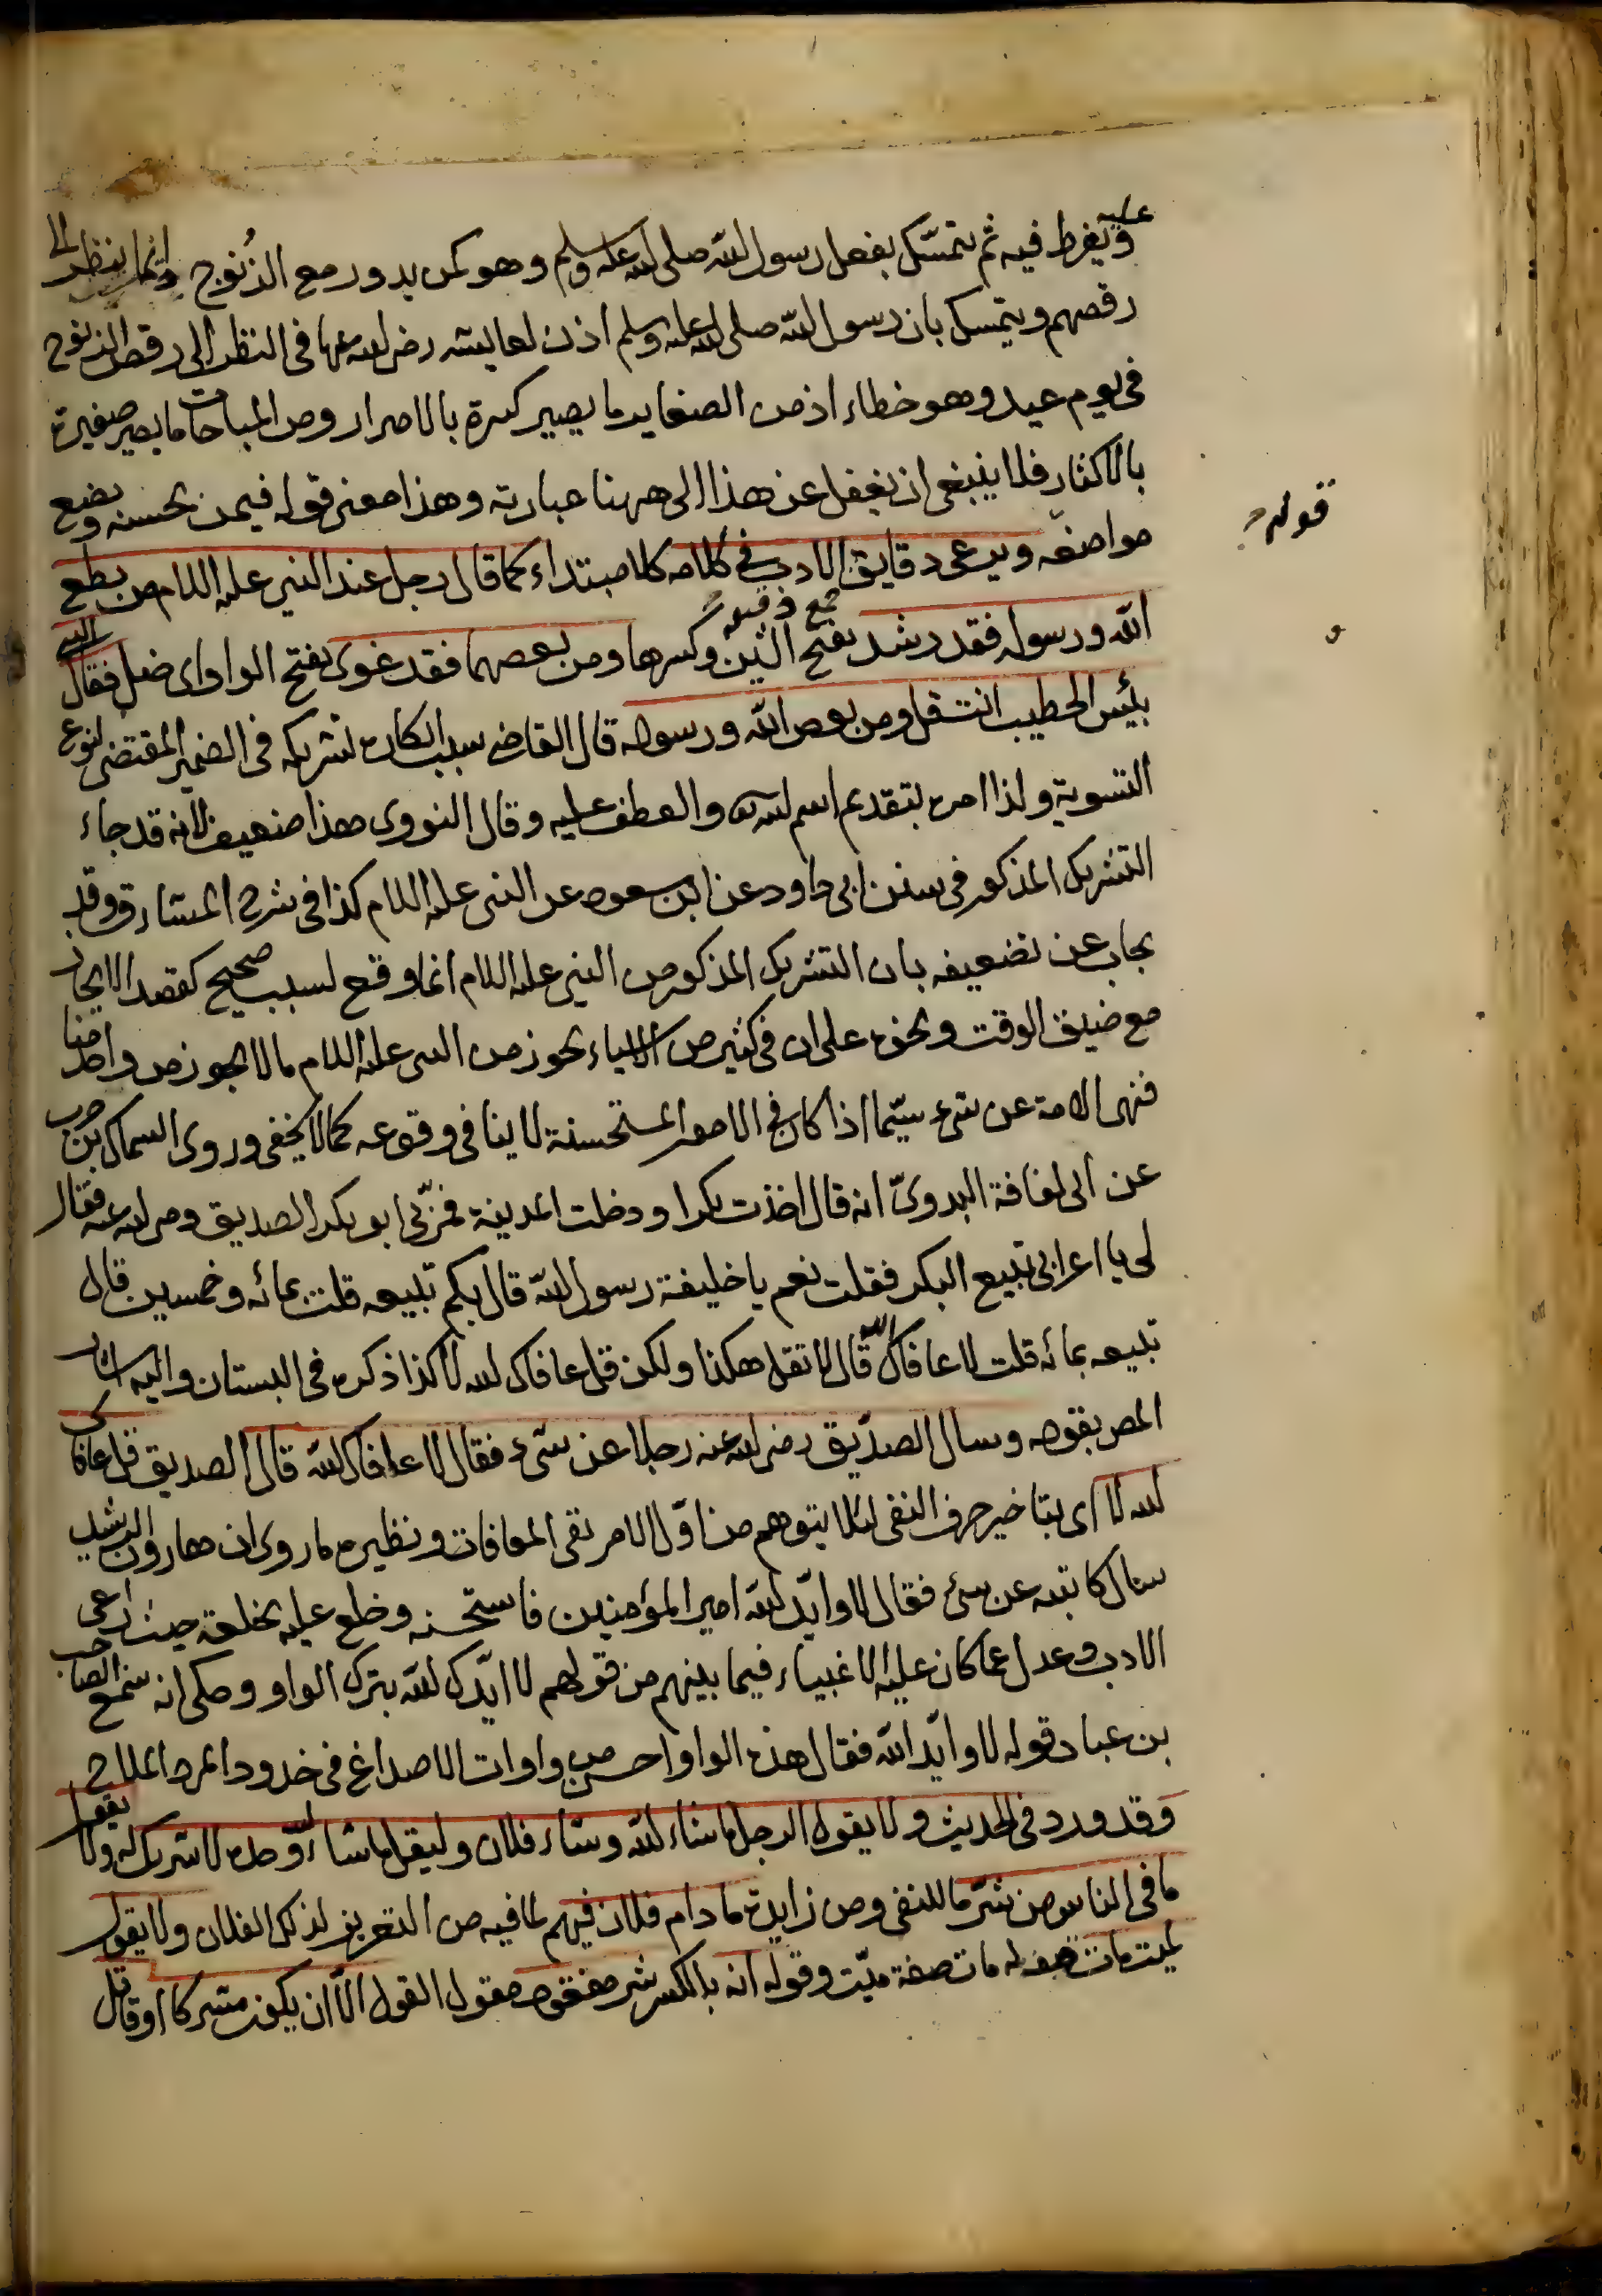 عليه
ويفرط فيه ثم يتمسّك بفعل رسول الله صلى الله عليه وسلم وهو كمن يدور مع الزُنوج دائما ينظر الى
رقصهم ويتمسك بان رسول الله صلى الله عليه وسلم اذن لعايشه رضى الله عنها فى النظر الى رقص الزنوج
فى يوم عيد وهو خطاء اذ من الصغاير ما يصير كبيرة بالاصرار ومن المباحات ما يصير صغيرة
بالاكثار فلا ينبغى ان يغفل عن هذا الى ههنا عبارته وهذا معنى قوله فيمن يحسنه ويضع
قوله
مواضعه ويرعى دقايق الادب فى كلامه كلام مبتداء كما قال رجل عند النبى عليه السلام من يطع
جمع دقيقة
الله ورسوله فقد رشد بفتح الشين وكسرها ومن يعصهما فقد غوى بفتح الواو اى ضل فقال النبى
بئيس الخطيب انت قل ومن يعص الله ورسوله قال القاضى سبب انكاره تشريكه فى الضمير المقتضى لنوع
التسوية ولذا امره بتقديم اسم الله والعطف عليه وقال النووى هذا ضعيف لانه قد جاء
التشريك المذكور فى سنن ابى داود عن ابن مسعود عن النبى عليه السلام كذا فى شرح المشارق وقد
يجاب عن تضعيفه بان التشريك المذكور من النبى عليه السلام انما وقع لسبب صحيح كقصد الايجاز
مع ضيق الوقت ونحوه على ان فى كثير من الاشياء يجوز من النبى عليه السلام ما لا يجوز من واحد منا
فنهى الامة عن شىء سيّما اذا كان فى الامور المستحسنة لا ينافى وقوعه كما لا يخفى وروى السماك بن حرب
عن ابى لفافة البدوىّ انه قال اخذت بكرا ودخلت المدينة فمرّ بى ابو بكر الصديق رضى الله عنه فقال
لى يا اعرابى تبيع البكر فقلت نعم يا خليفة رسول الله قال بكم تبيعه قلت بمائه وخمسين قال
تبيعه بمائه قلت لا عافاك الله قال لا تقل هكذا ولكن قل عافاك الله لا كذا ذكره فى البستان واليه اشار
المص بقوله وسال الصدّيق رضى الله عنه رجلا عن شىء فقال لا عافاك الله قال الصديق قل عافاك
الله لا اى بتاخير حرف النفى لئلا يتوهم من اوّل الامر نفى المعافات ونظيره ما روى ان هارون الرشيد
سال كاتبه عن شئ فقال لا وايّد الله امير المؤمنين فاستحسنه وخلع عليه بخلعة حيث راعى
الادب وعدل عما كان عليه الاغبياء فيما بينهم من قولهم لا ايّدك الله بترك الواو وحكى انه سمع الصاحب
بن عباد قوله لا وايّد الله فقال هذه الواو احسن من واوات الاصداغ فى خدود المرد الملاح
وقد ورد فى الحديث ولا يقول الرجل ما شاء الله وشاء فلان وليقل ما شاء الله وحده لا شريك له ولا يقول
ما فى الناس من شرّ ما للنفى ومن زايدة ما دام فلان فيهم لما فيه من التعريض لذلك الفلان ولا يقول
لميت مات صفة ميّت وقوله انه بالكسر شر مفقود مقول القول الّا ان يكون مشركا او قال